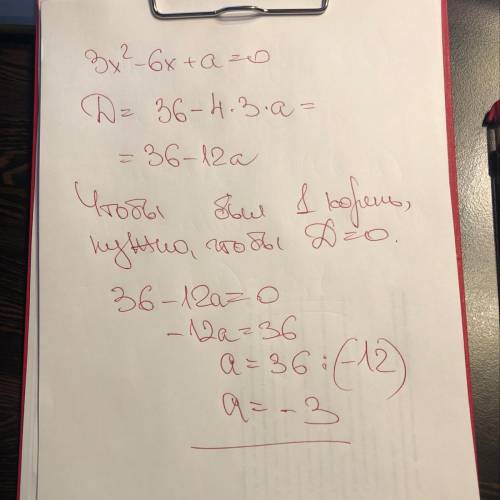 3x²-6x+a=0
D= 36-4·3·a=
= 36-12a
Чтобы был 1 корень,
нужно, чтобы D=0.
36-12a=0
-12a=36
a=36:(-12)
a=-3